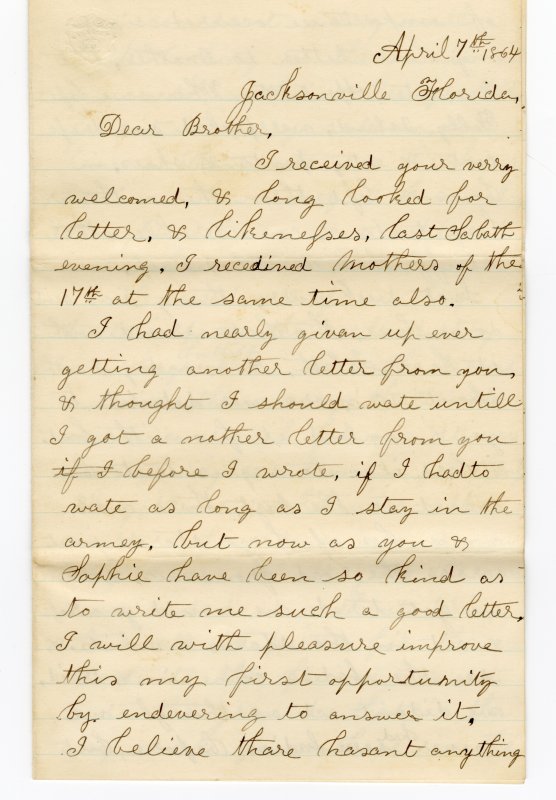 April 7th 1864
Jacksonville Florida,
Dear Brother,
I received your verry
welcomed, & long looked for
letter, & likenesses, last Sabath
evening. I recedived Mothers of the
17th at the same time also.
I had nearly givan up ever
getting another letter from you,
& thought I should wate untill
I got a nother letter from you
if I before I wrote, if I had to
wate as long as I stay in the
armey. but now as you &
Sophie have been so kind as
to write me such a good letter,
I will with pleasure improve
this my first opportunity
by endevering to answer it.
I believe thare hasant anything